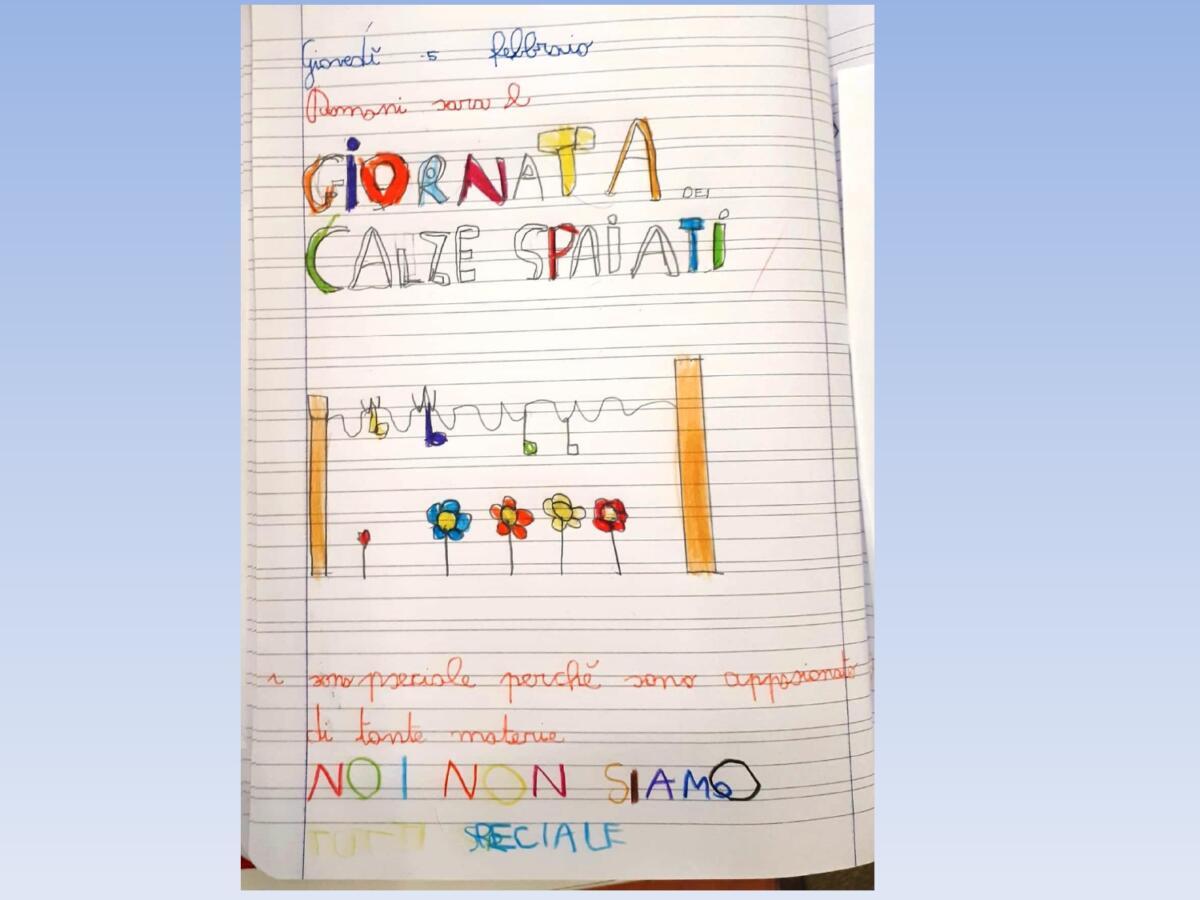 Giovedì 5 febbraio
Domani sara l
GIORNATA DEI
CALZE SPAIATI
sono pseciale perchĕ sono appasionato
di tante materie
NOI NON SIAMO
TUTTI SPECIALE